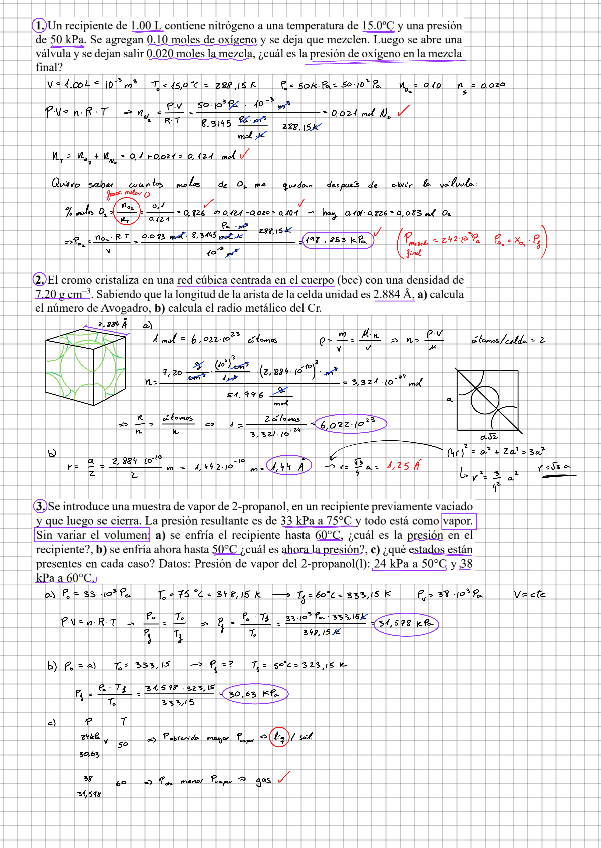 1. Un recipiente de 1.00 L contiene nitrógeno a una temperatura de 15.0ºC y una presión
de 50 kPa. Se agregan 0.10 moles de oxígeno y se deja que mezclen. Luego se abre una
válvula y se dejan salir 0.020 moles la mezcla, ¿cuál es la presión de oxígeno en la mezcla
final?
V = 1.00 L = 10⁻³ m³ T₀ = 15,0ºC = 288,15 K P₀ = 50 K·Pa = 50·10³ Pa n_O₂ = 0.10 n_s = 0.020
P·V = n·R·T ⇒ n_N₂ = P·V / R·T = 50·10³ Pa · 10⁻³ m³ / 8.3145 Pa·m³ / mol·K 288,15 K = 0,021 mol N₂ ✓
n_T = n_O₂ + n_N₂ = 0,1 + 0,021 = 0,121 mol ✓
Quiero saber cuantos moles de O₂ me quedan después de abrir la válvula
% moles O₂ = n_O₂ / n_T = 0,1 / 0,121 = 0,826 ✓ ⇒ 0,121 - 0,020 = 0,101 ✓ → hay 0.101·0.826 = 0,083 mol O₂
⇒ P_O₂ = n_O₂·R·T / V = 0.083 mol · 8,3145 Pa·m³ / mol·K 288,15 K / 10⁻³ m³ = 198.853 KPa ✓
2. El cromo cristaliza en una red cúbica centrada en el cuerpo (bcc) con una densidad de
7.20 g cm⁻³. Sabiendo que la longitud de la arista de la celda unidad es 2.884 Å, a) calcula
el número de Avogadro, b) calcula el radio metálico del Cr.
2,884 Å
a)
1 mol = 6,022·10²³ átomos ρ = m / V = M·n / V ⇒ n = ρ·V / M átomos/celda = 2
n = 7,20 g / cm³ · (10²)³ cm³ / 1 m³ · (2,884·10⁻¹⁰)³ m³ / 51,996 g / mol = 3,321·10⁻²⁴ mol
1 = 2 átomos / 3,321·10⁻²⁴ = 6,022·10²³
a
a√2
b)
r = a / 2 = 2,884·10⁻¹⁰ / 2 m = 1,442·10⁻¹⁰ m = 1,44 Å → r = √3 / 4 a = 1,25 Å
(4r)² = a² + 2a² = 3a²
r² = 3 / 4² a²
3. Se introduce una muestra de vapor de 2-propanol, en un recipiente previamente vaciado
y que luego se cierra. La presión resultante es de 33 kPa a 75°C y todo está como vapor.
Sin variar el volumen: a) se enfría el recipiente hasta 60°C, ¿cuál es la presión en el
recipiente?, b) se enfría ahora hasta 50°C ¿cuál es ahora la presión?, c) ¿qué estados están
presentes en cada caso? Datos: Presión de vapor del 2-propanol(l): 24 kPa a 50°C y 38
kPa a 60°C.
a) P₀ = 33·10³ Pa T₀ = 75 ºC = 348,15 K → T_f = 60ºC = 333,15 K P_v = 38·10³ Pa V = cte
P·V = n·R·T → P₀ / P_f = T₀ / T_f ⇒ P_f = P₀·T_f / T₀ = 33·10³ Pa · 333,15 K / 348,15 K = 31,578 KPa
b) P₀ = a) T₀ = 333,15 → P_f = ? T_f = 50ºC = 323,15 K
P_f = P₀·T_f / T₀ = 31,578·323,15 / 333,15 = 30,63 KPa
c) P T
24 kPa
50 ⇒ P obtenida mayor P_vapor ⇒ liq / sol
30,63
38
60 ⇒ menor P_vapor ⇒ gas ✓
31,578